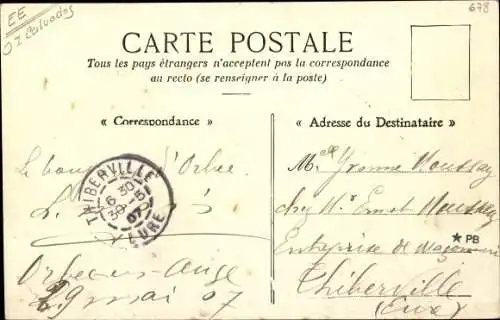 EE
678
CARTE POSTALE
Tous les pays étrangers n'acceptent pas la correspondance
au recto (se renseigner à la poste)
« Correspondance »
« Adresse du Destinataire »
Le d'Orbec
L.
THIBERVILLE
6 30
30 -5
07
EURE
Orbec-en-Auge
29 mai 07
Melle Yvonne Houssay
chez Mr Ernest Houssay
Entreprise de
PB
Thiberville
(Eure)